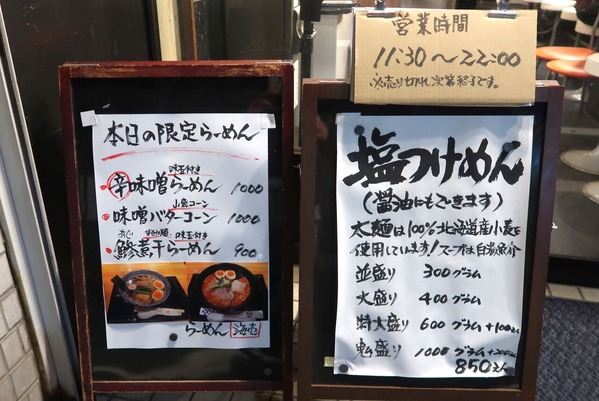 営業時間
11:30〜22:00
※売り切れ次第終了です。
本日の限定らーめん
味玉付き
・辛味噌らーめん 1000
小盛コーン
・味噌バターコーン 1000
あじ 味玉付き
・鯵煮干らーめん 900
らーめん 海壱
塩つけめん
(醤油にもできます)
太麺は100%北海道産小麦を
使用しています!スープは白湯魚介
並盛り 300グラム
大盛り 400グラム
特大盛り 600グラム+100えん
1000グラム
850えん